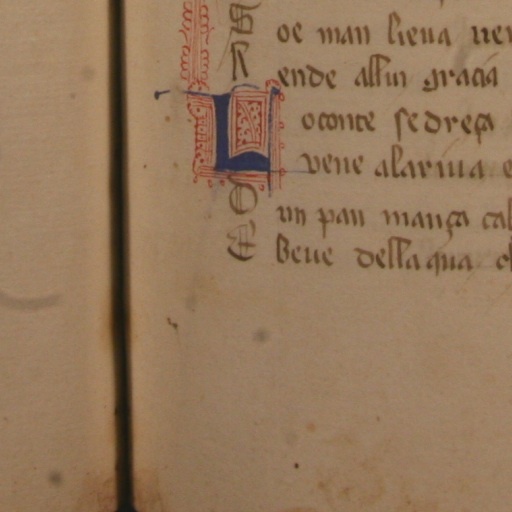 S oe man lieua ver
R ende assui gracia
L oconte se dreça
vene alariua e
D un pan mança cal
E beue dellaqua ch